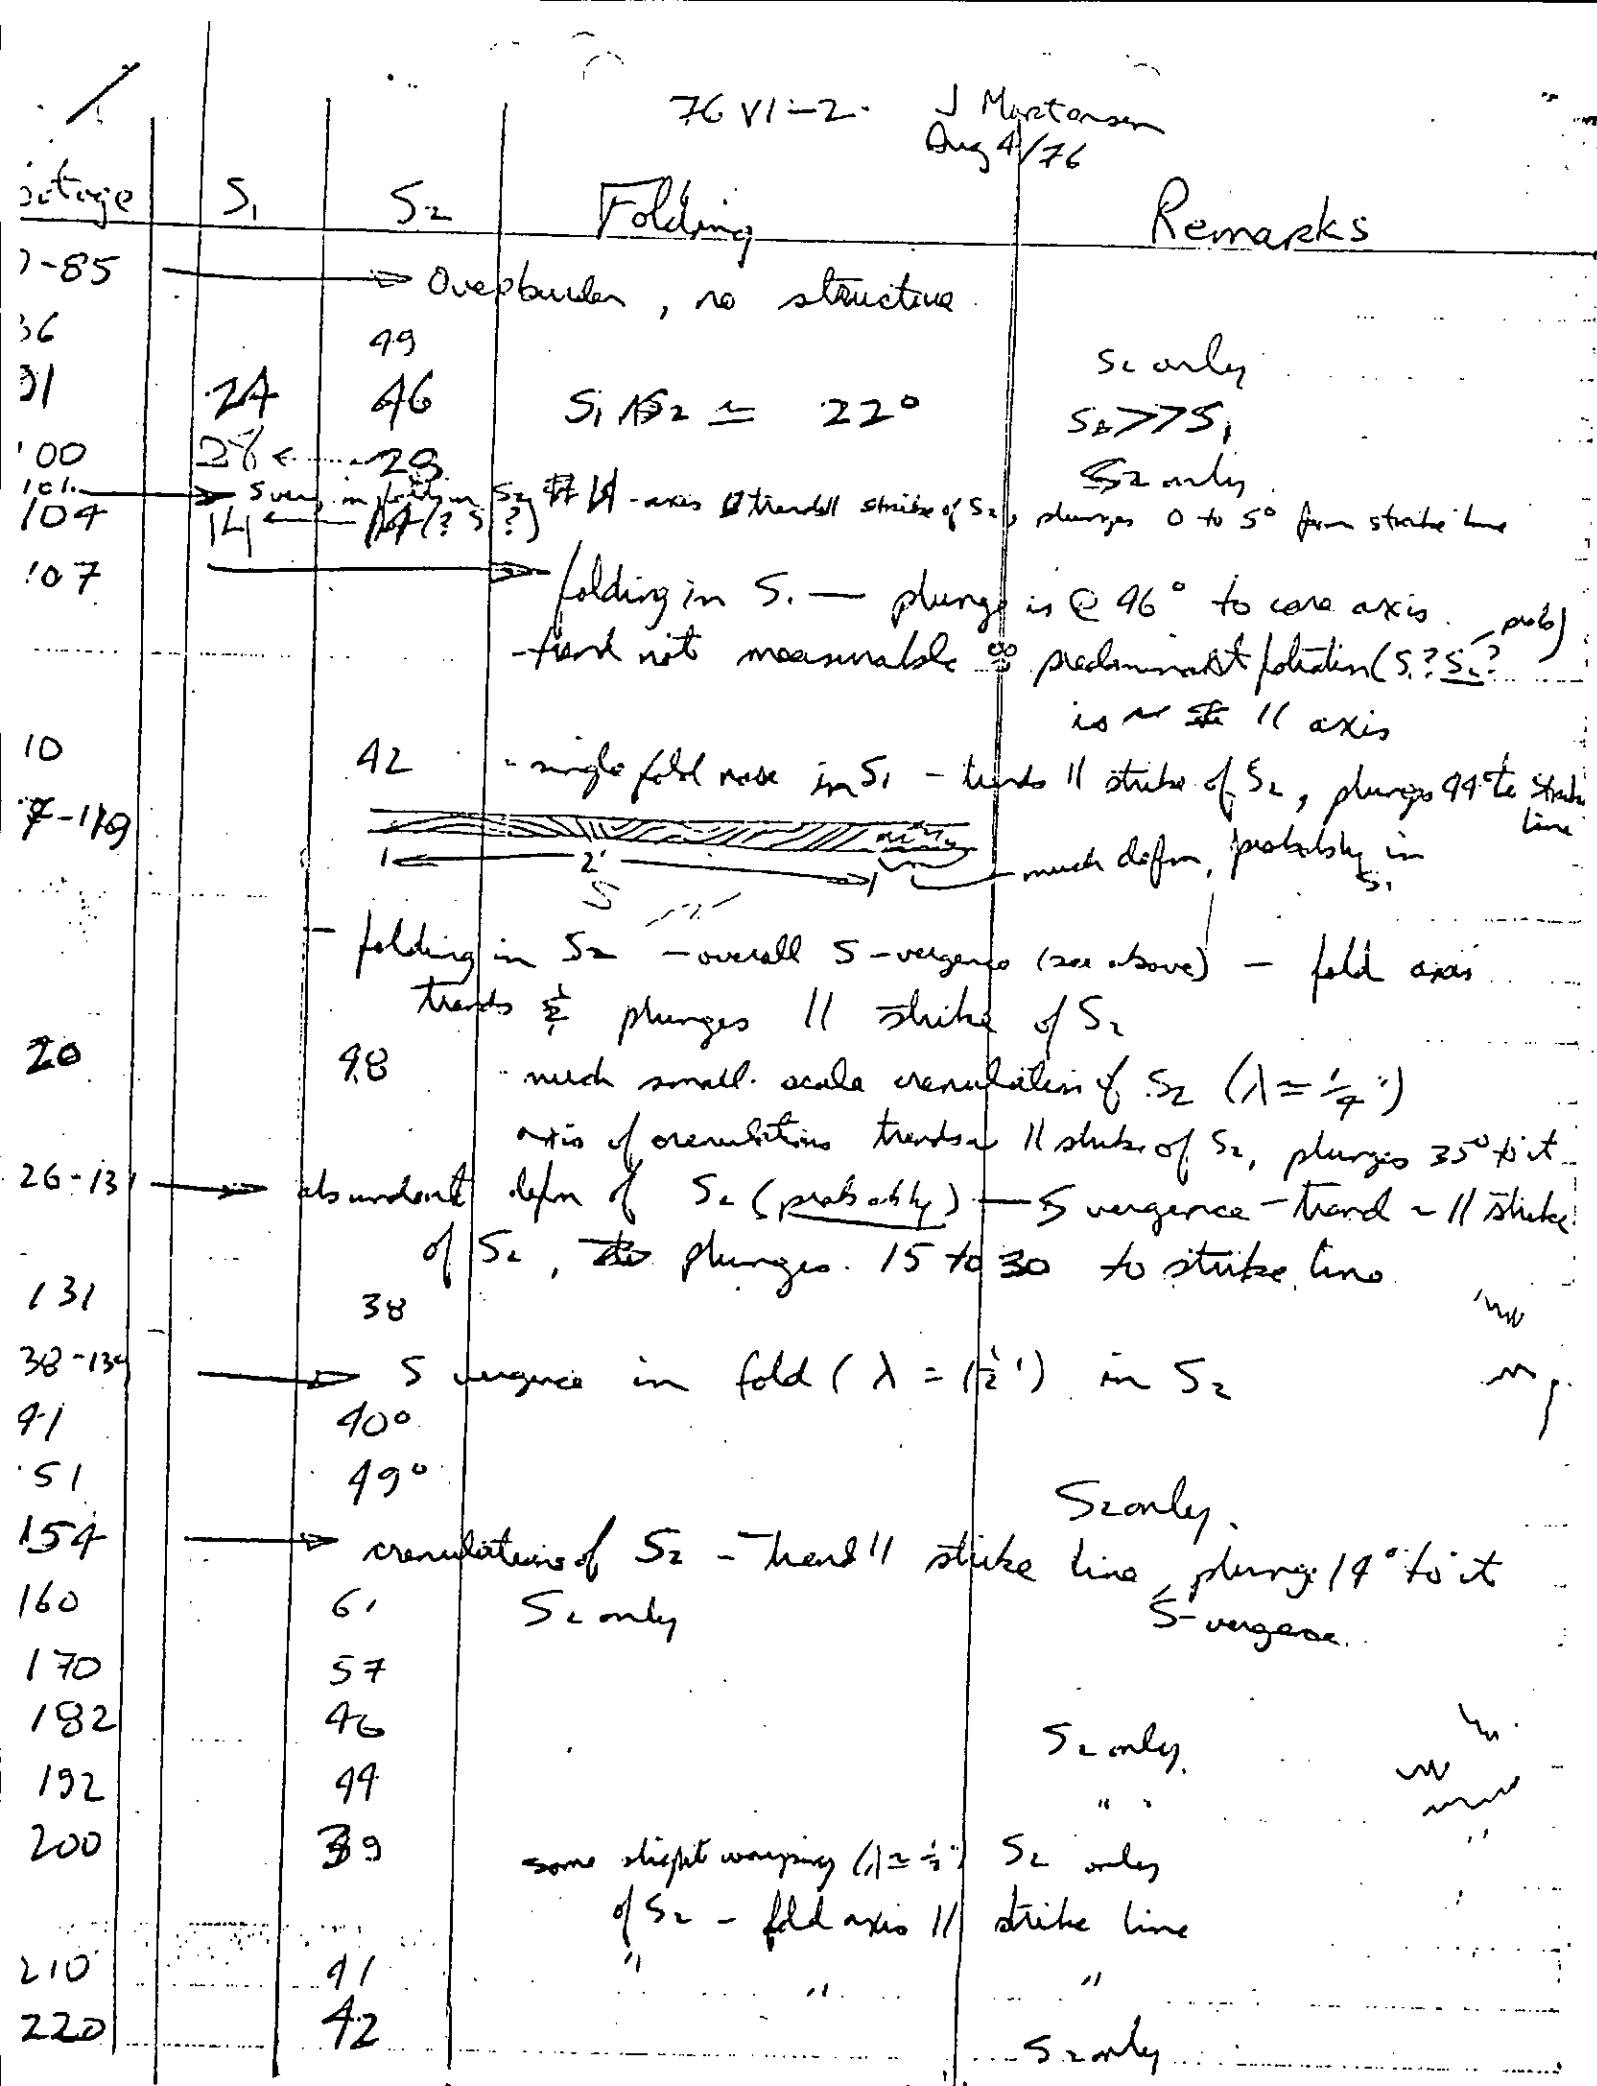 76 V1-2. J Mortensen
Aug 4/76
ootage S1 S2 Folding Remarks
-85 → Overburden, no structure
86 49 S2 only
91 24 46 S1 ∧ S2 ≃ 22° S2>>S1
100 28 ← 28 S2 only
101 → S verg. in folds in S2 - axis trend // strike of S2, plunges 0 to 5° from strike line
104 14 ← 14 (? S1?)
107 → folding in S1 — plunge is @ 46° to core axis.
- trend not measurable ∵ predominant foliation (S1? S2? prob)
is ~ // axis
10 42 - single fold nose in S1 - trends // strike of S2, plunges 44° to strike line
7-119
1 ← 2' → 1 much defm, probably in S1
S
- folding in S2 - overall S-vergence (see above) - fold axis
trends & plunges // strike of S2
20 48 - much small scale crenulation of S2 (λ ≃ 1/4")
axis of crenulations trends ~ // strike of S2, plunges 35° to it
26-131 → abundant defm of S2 (probably) — S vergence - trend ~ // strike
of S2, plunges 15 to 30 to strike line
131 38
38-139 → S vergence in fold (λ = 1 1/2') in S2
41 40°
51 49° S2 only.
154 → crenulations of S2 - trend // strike line, plunge 14° to it
160 61 S2 only S-vergence
170 57
182 46 S2 only.
192 44 " "
200 39 some slight warping (λ ≃ 1/2") S2 only
of S2 - fold axis // strike line
210 41 " " "
220 42 S2 only